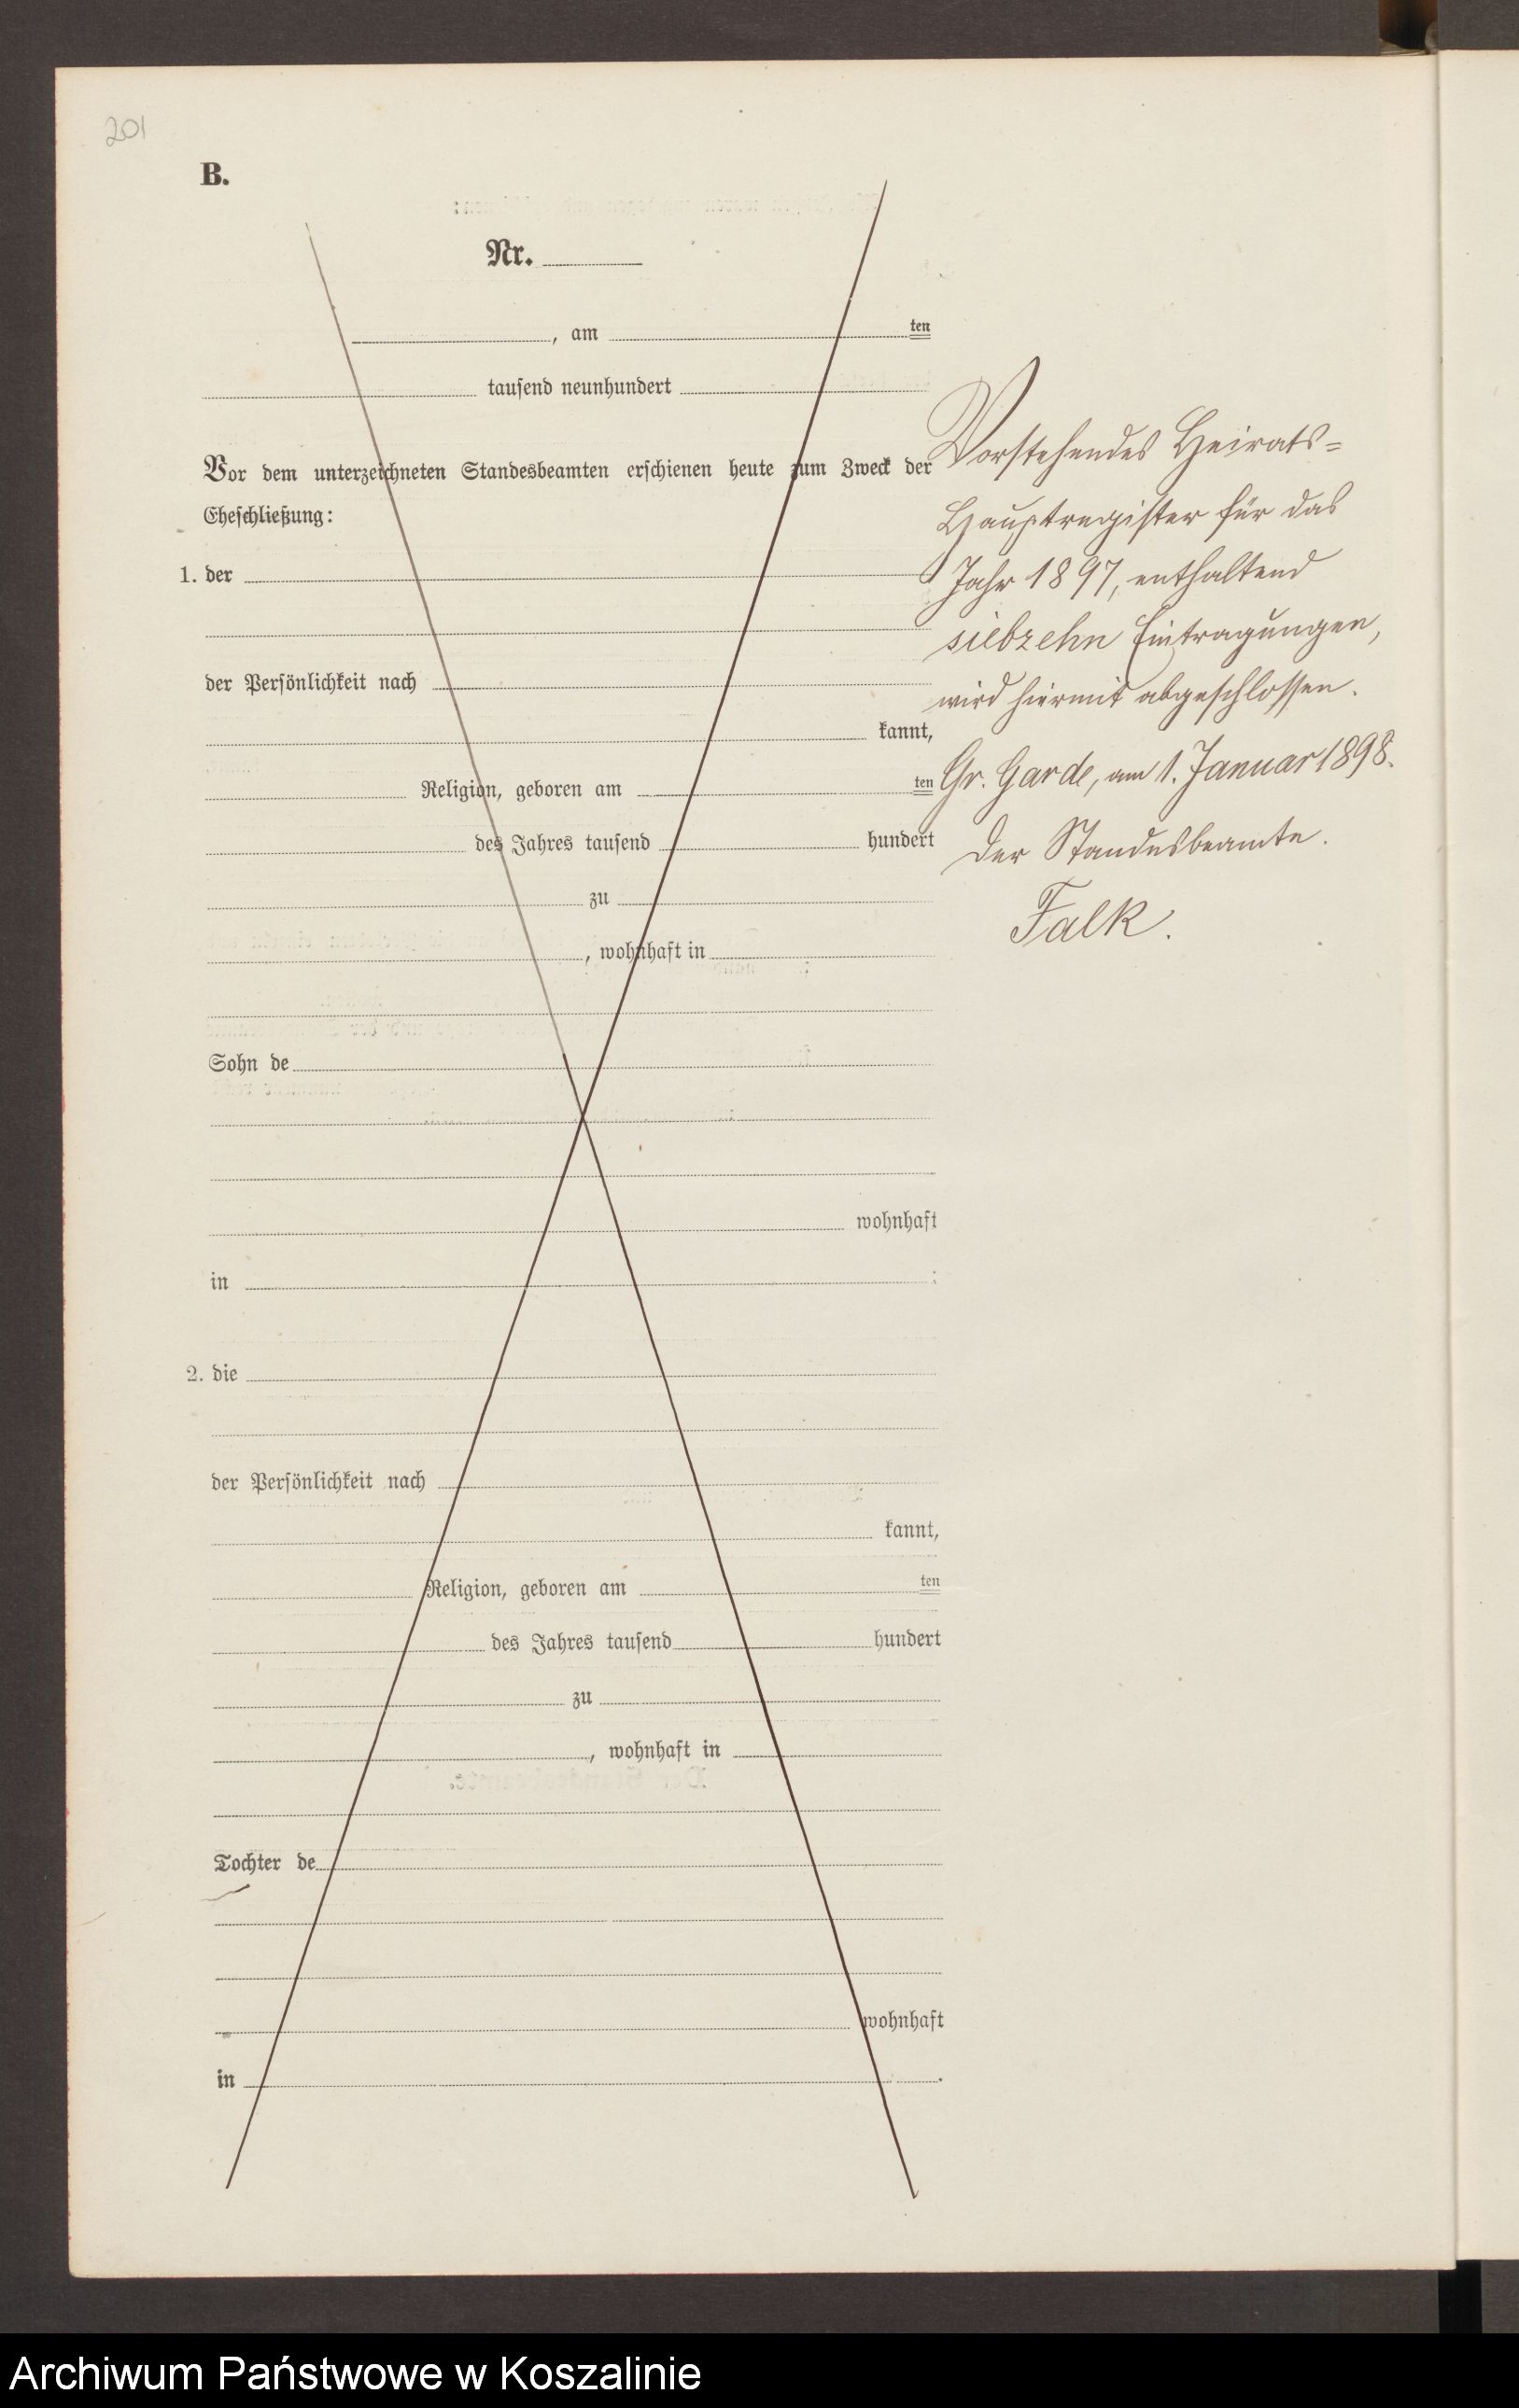 201
B.
Nr.
, am ten
tausend neunhundert
Vor dem unterzeichneten Standesbeamten erschienen heute zum Zweck der
Eheschließung:
1. der
der Persönlichkeit nach
kannt,
Religion, geboren am ten
des Jahres tausend hundert
zu
, wohnhaft in
Sohn de
wohnhaft
in :
2. die
der Persönlichkeit nach
kannt,
Religion, geboren am ten
des Jahres tausend hundert
zu
, wohnhaft in
Tochter de
wohnhaft
in .
Vorstehendes Heirats=
Hauptregister für das
Jahr 1897, enthaltend
siebzehn Eintragungen,
wird hiermit abgeschlossen.
Gr. Garde, am 1. Januar 1898.
Der Standesbeamte.
Falk.
Archiwum Państwowe w Koszalinie